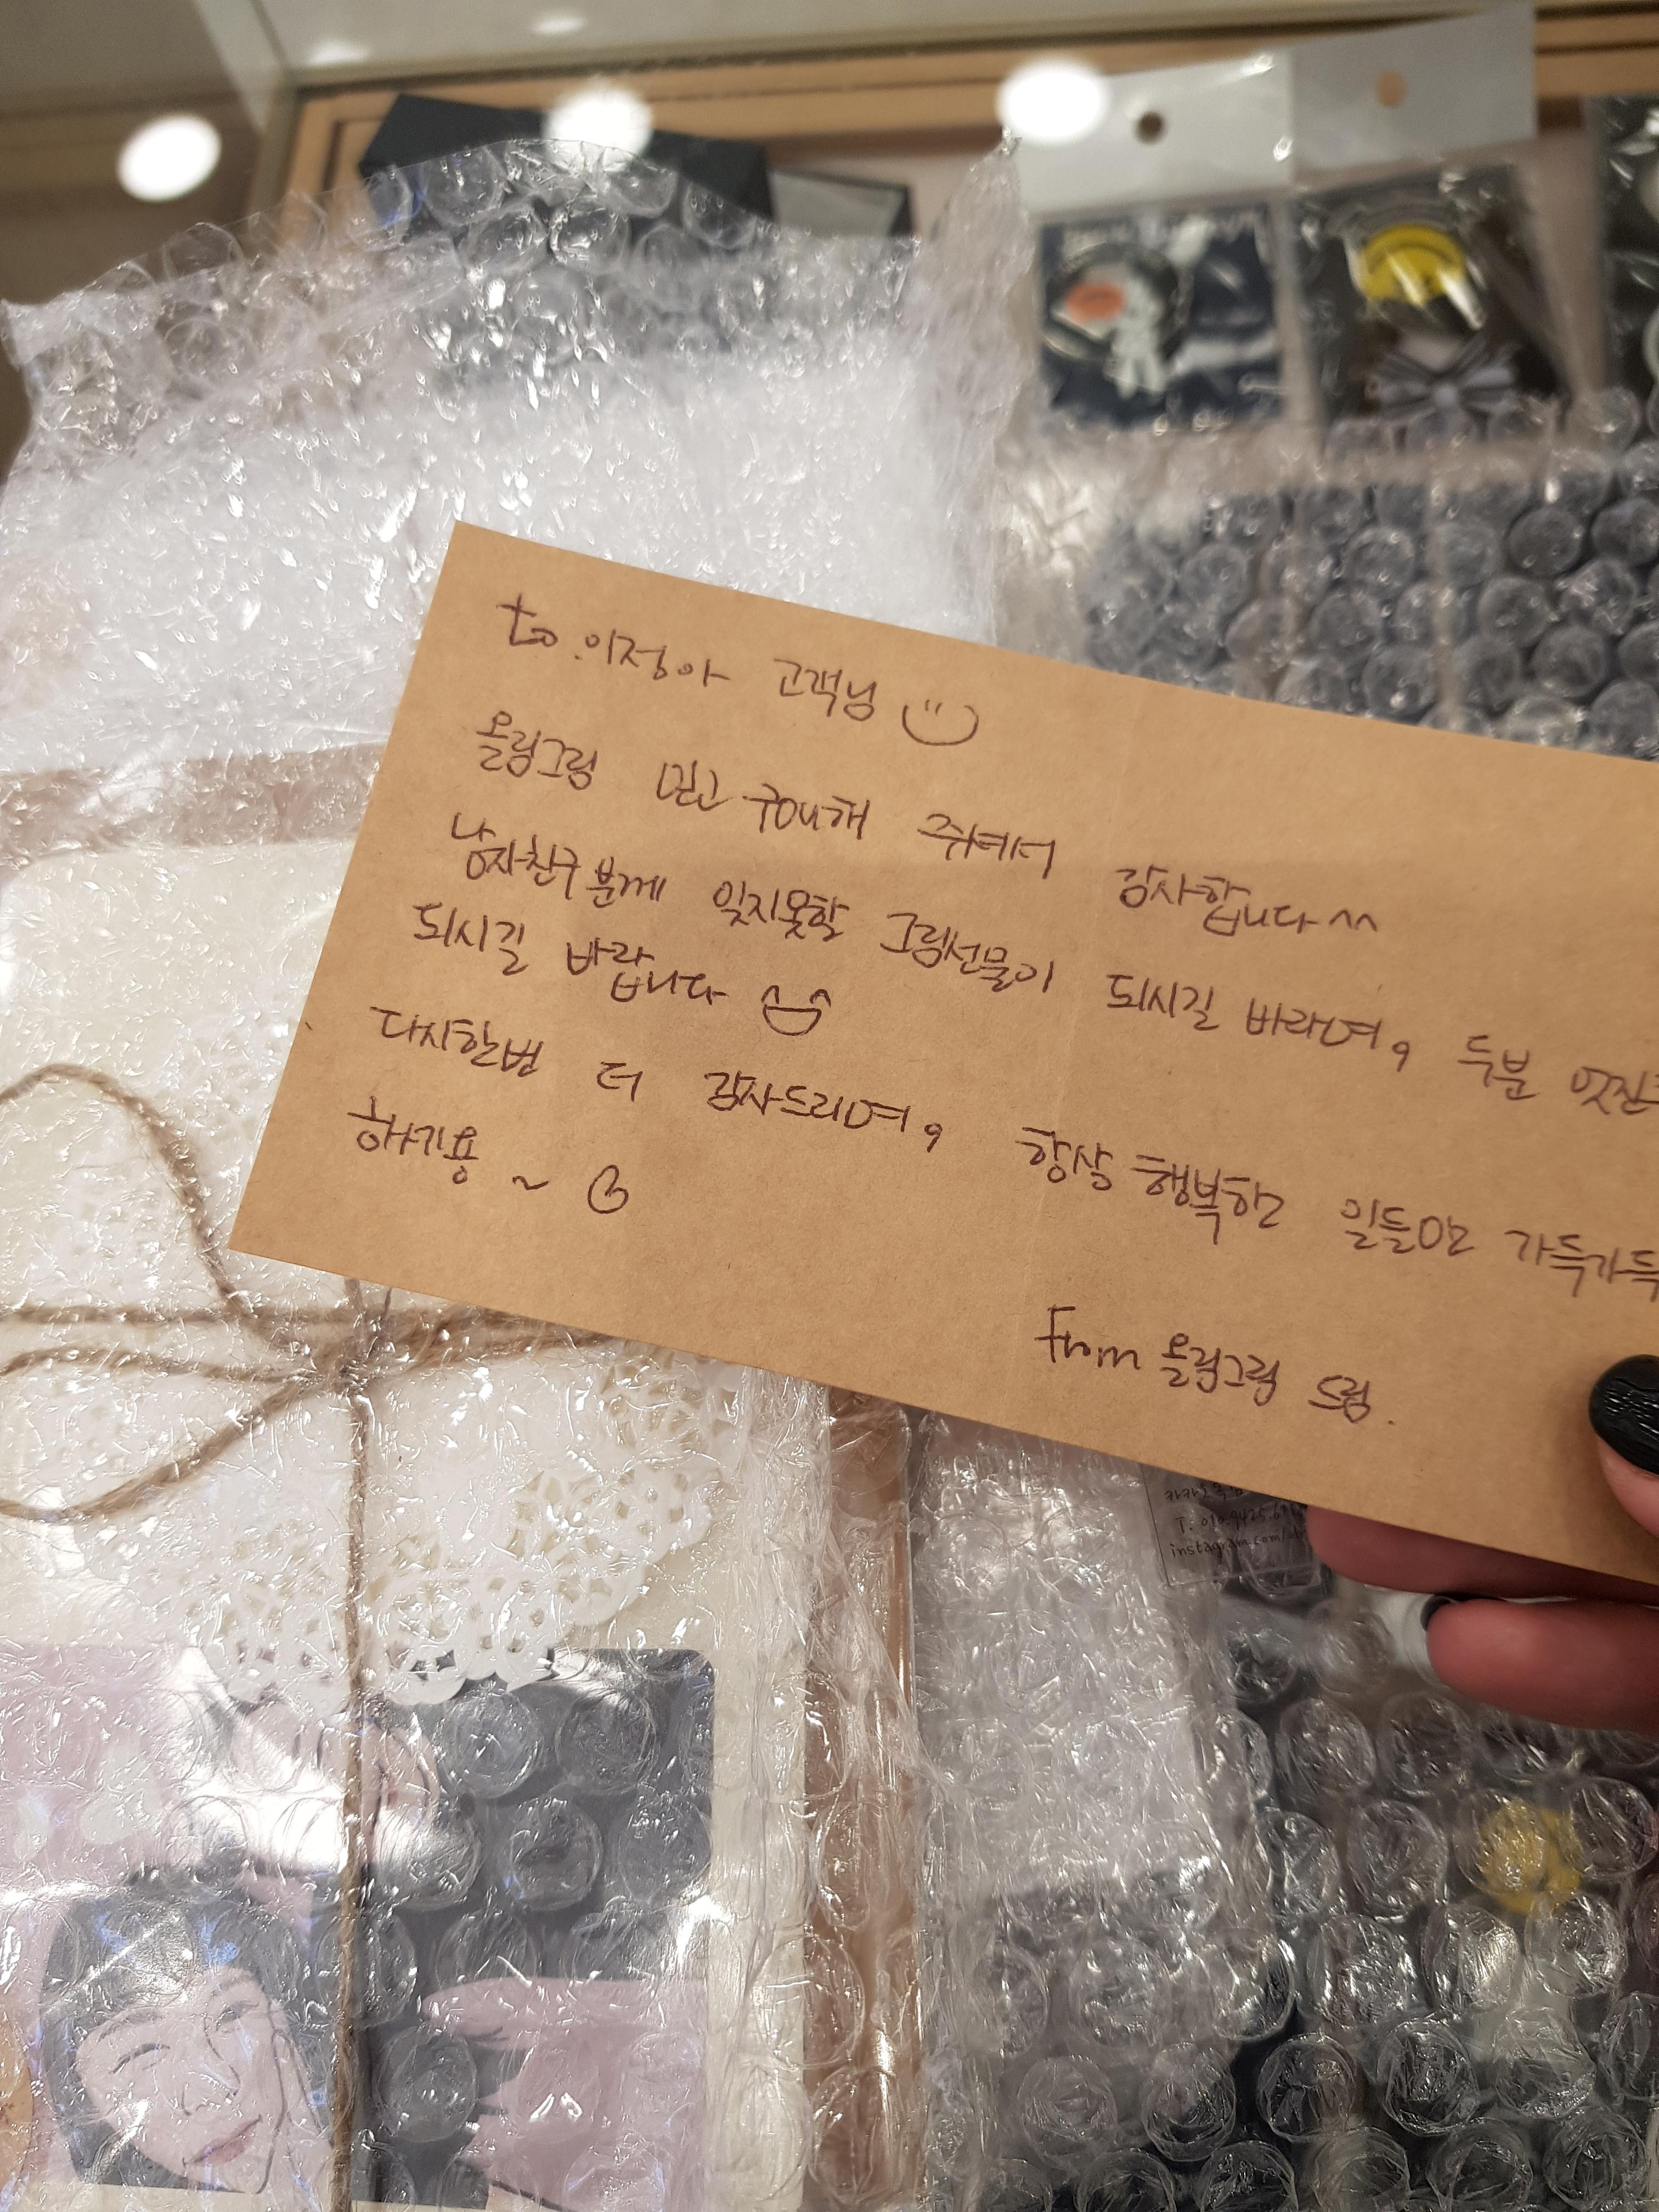 to.이정아 고객님
올림그림 믿고 구매해 주셔서 감사합니다^^
남자친구분께 잊지못할 그림선물이 되시길 바라며, 두분 멋진
되시길 바랍니다
다시한번 더 감사드리며, 항상 행복한 일들만 가득가득
하시용~
From 올림그림 드림.
instagram.com/